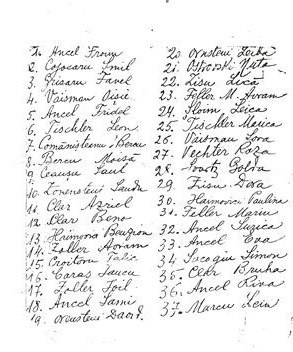 1. Ancel Froim
2. Cojocaru Smil
3. Grisaru Favel
4. Vaisman Oisie
5. Ancel Fridel
6. Tischler Leon
7. Comănisteanu Bercu
8. Bercu Moisă
9. Ceausu Saul
10. Zonenstein Sandu
11. Clar Azriel
12. Clar Beno
13. Haimona Benzion
14. Zoller Avram
15. Croitoru Talic
16. Caras Iancu
17. Zoller Soil
18. Ancel Sami
19. Orenstein David
20. Ornstein Leiba
21. Ostrovski Nuta
22. Zisu Lică
23. Feller M. Avram
24. Sloim Leica
25. Tischler Marica
26. Vaisman Sora
27. Vechter Roza
28. Golda
29. Frisu Dora
30. Haimovici Paulina
31. Feller Maria
32. Ancel Suzica
33. Ancel Eva
34. Iacogiu Simon
35. Clar Bruha
36. Ancel Riva
37. Marcu Lein